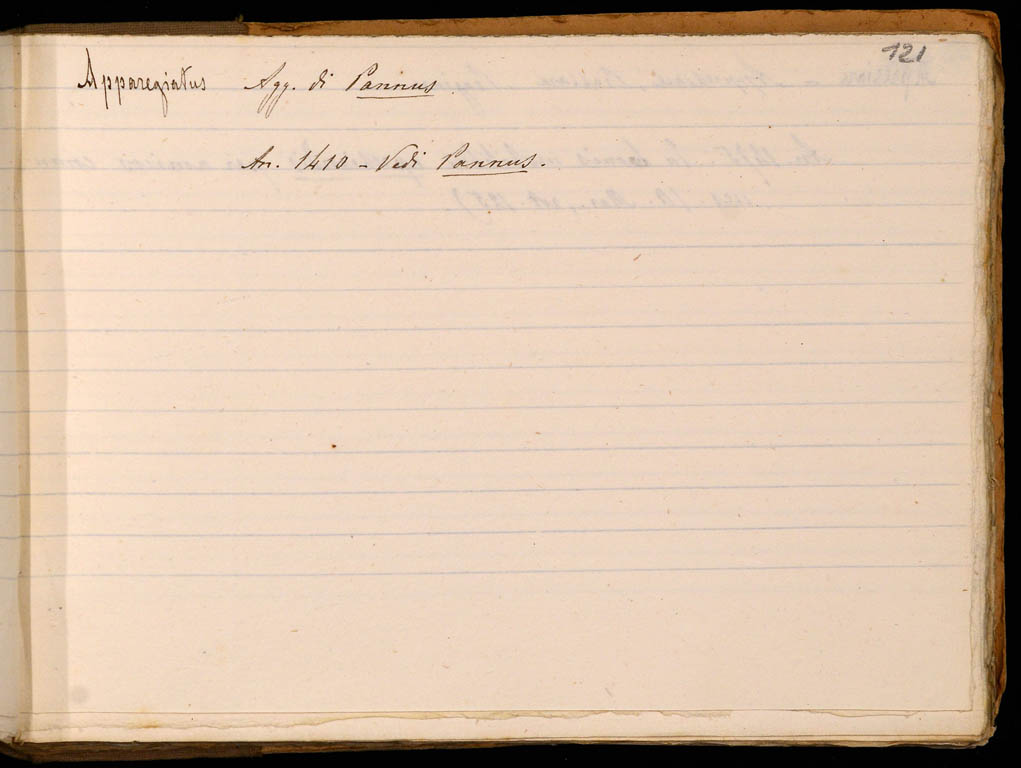 121
Apparegiatus Agg. di Pannus.
An. 1410 - Vedi Pannus.